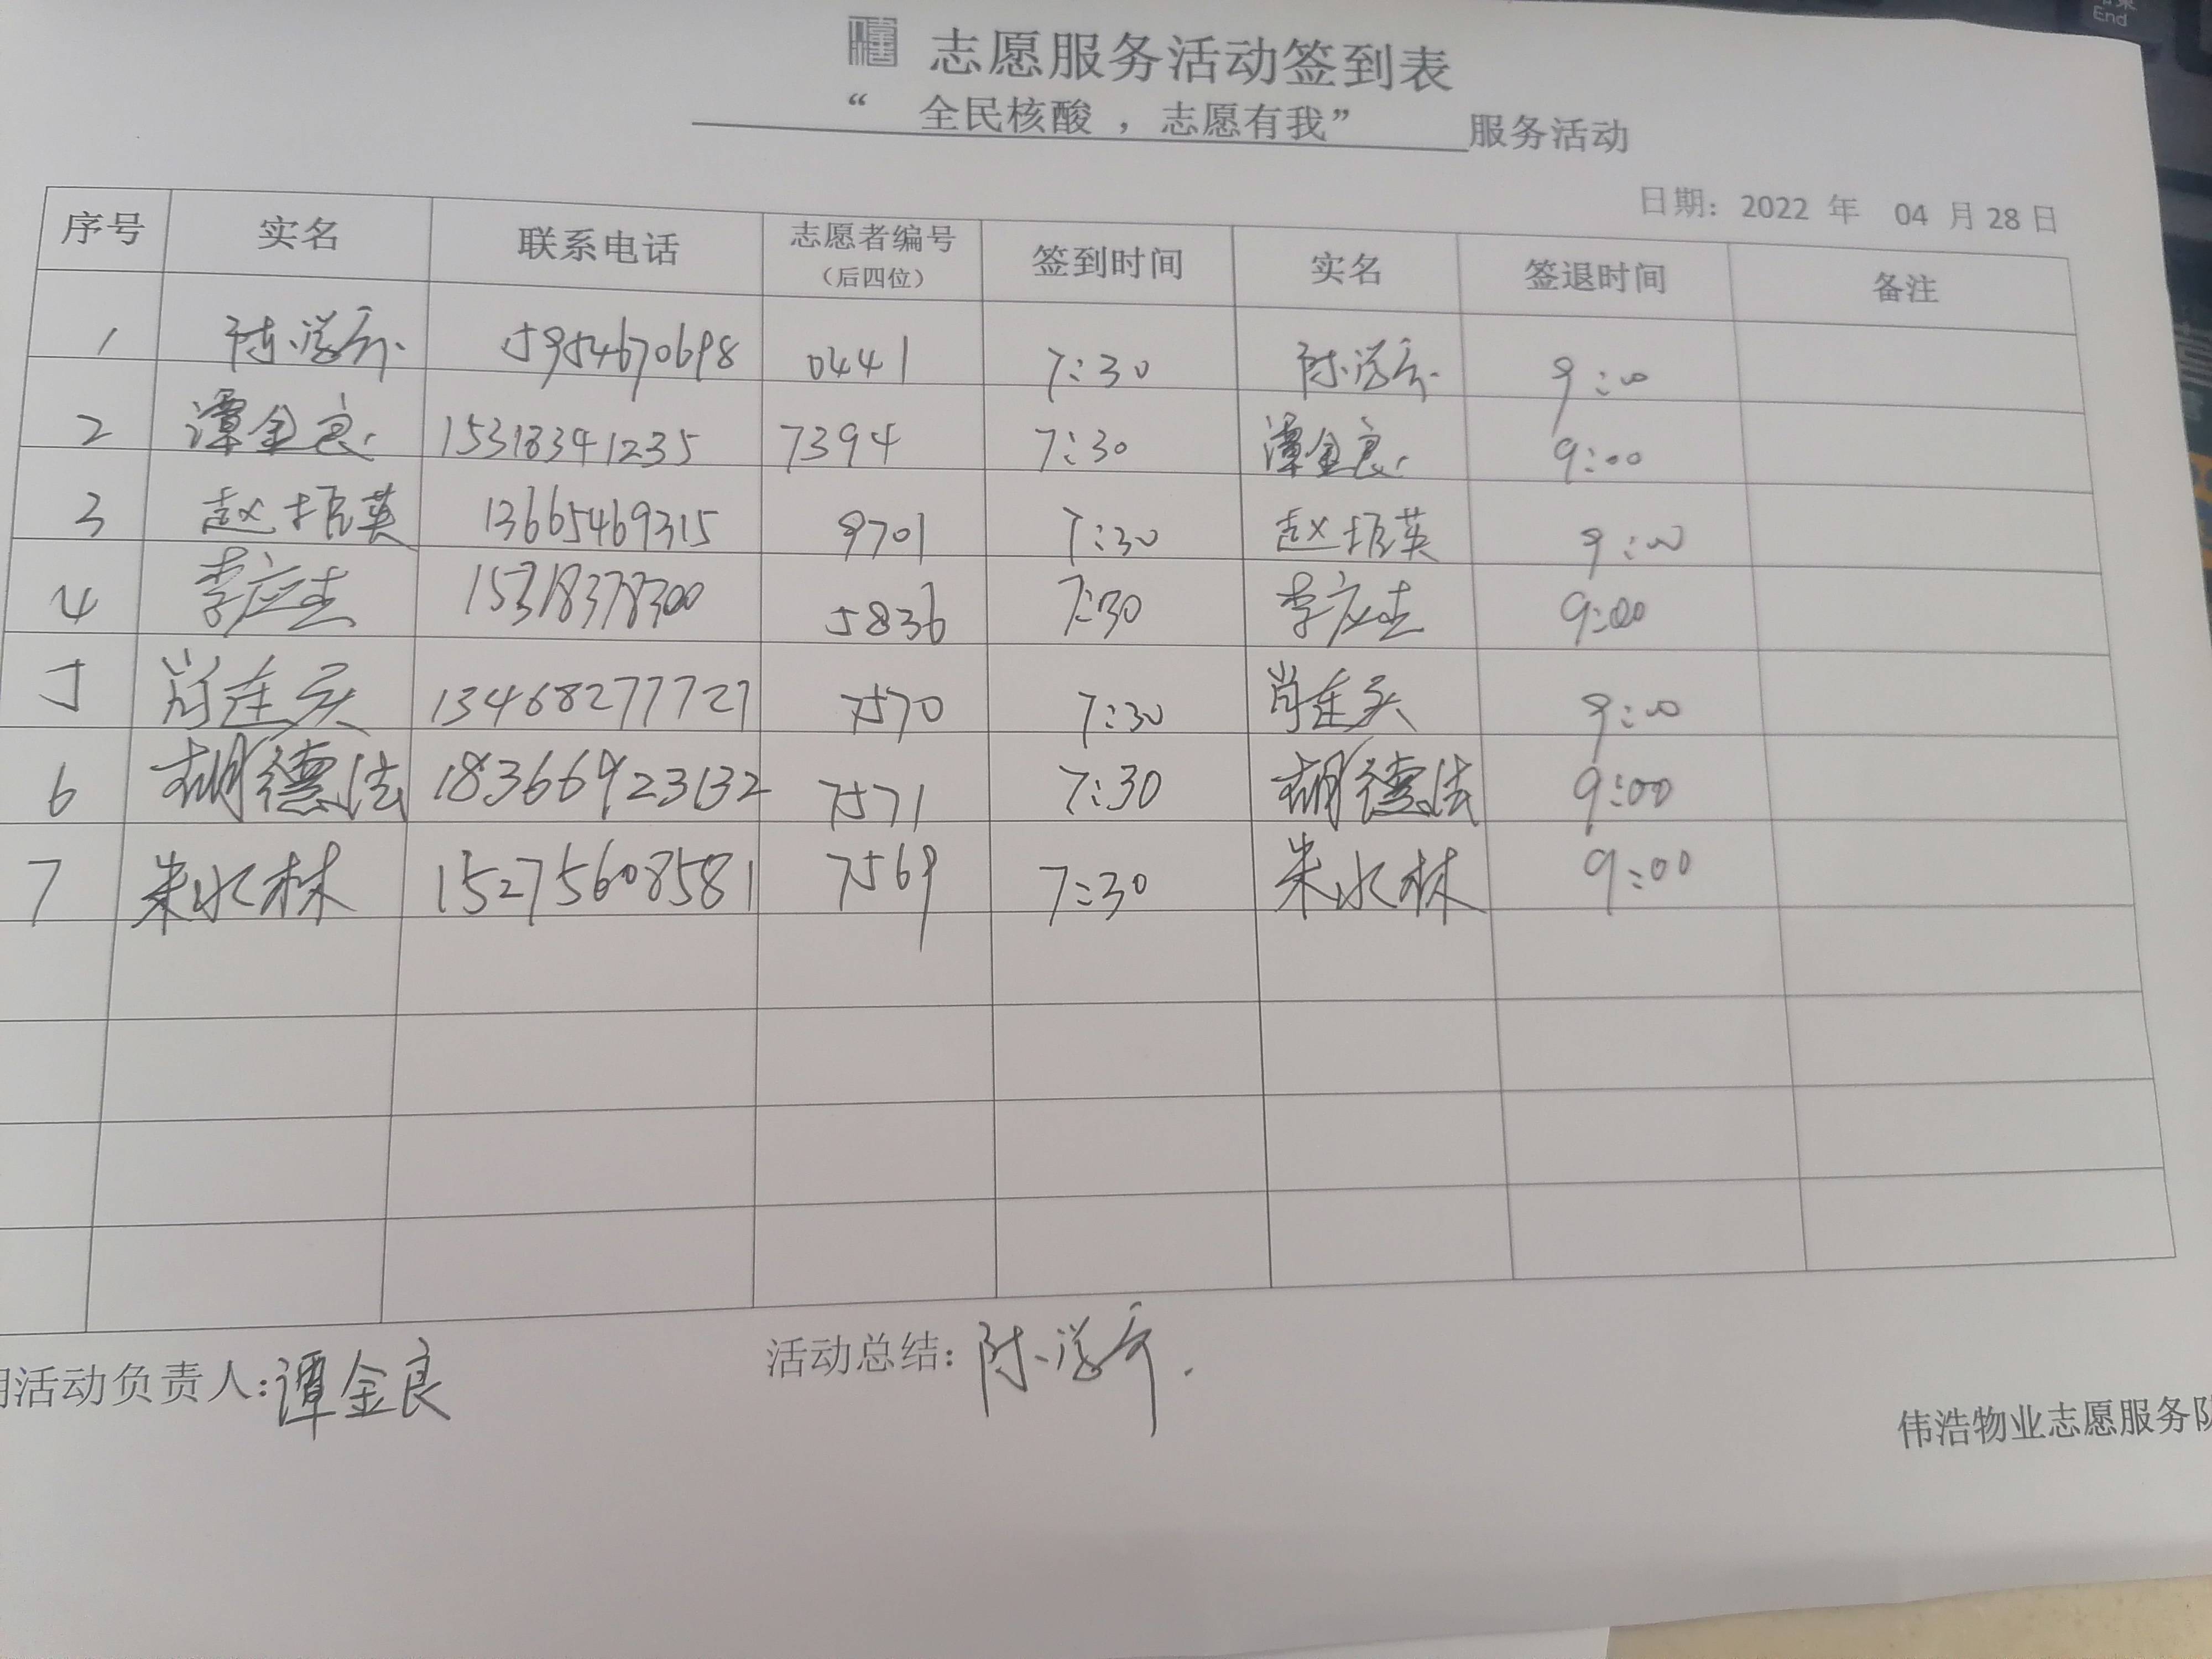 志愿服务活动签到表
“ 全民核酸 ，志愿有我” 服务活动
日期：2022 年 04 月 28 日
序号 实名 联系电话 志愿者编号（后四位） 签到时间 实名 签退时间 备注
1 陈 5954670698 0441 7:30 陈 9:00
2 谭金良 15318341235 7394 7:30 谭金良 9:00
3 赵振英 13665469315 9701 7:30 赵振英 9:00
4 李应杰 15318378300 5836 7:30 李应杰 9:00
5 肖连 13468277727 7570 7:30 肖连 9:00
6 胡德法 18366923132 7571 7:30 胡德法 9:00
7 朱水林 15275608581 7569 7:30 朱水林 9:00
期活动负责人：谭金良 活动总结：陈
伟浩物业志愿服务队
End